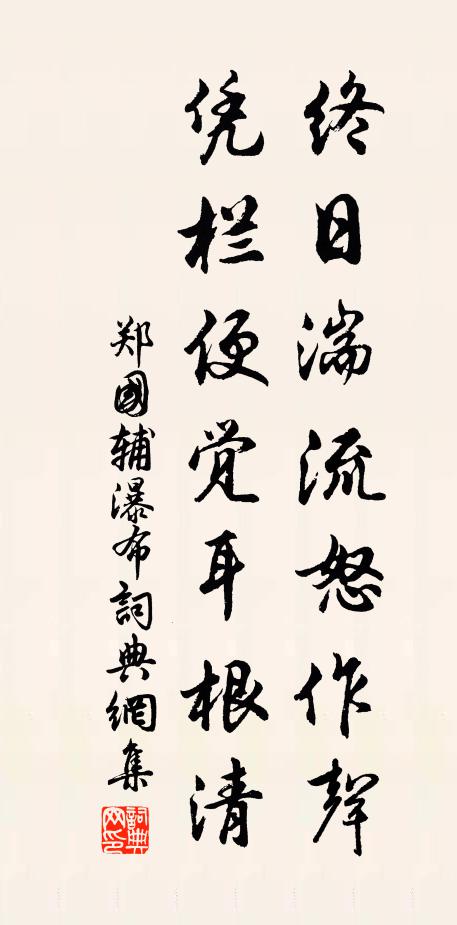 终日湍流怒作聲
凭栏便觉耳根清
郑國辅瀑布詞典網集
詞典网印